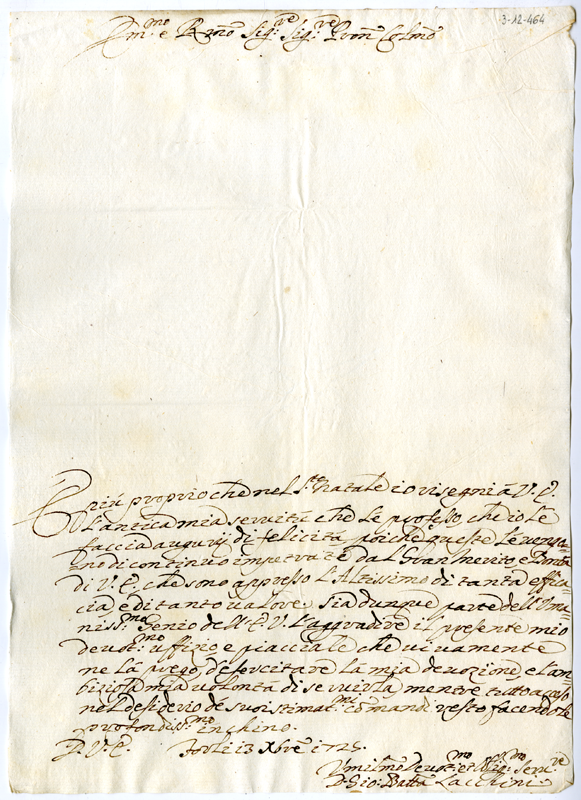 3-12-464
Em.mo e R.mo Sig.re Sig.re Pron Colmo
E più proprio che nel S.to Natale io risegni à V. E.
L'antica mia servitù che le professo, che io le
faccia augurij di felicità poiche queste le vengo-
no di continuo impetrate dal Gran Merito, e Bontà
di V. E. che sono appresso L'Altissimo di tanta effica-
cia e di tanto valore. Sia dunque parte dell'Uma-
niss.mo Genio dell'E. V. L'aggradire il presente mio
devot.mo uffizio e piacciale che vivamente
ne la prego d'esercitare la mia devozione, e l'am-
biziosa mia volontà di servirla mentre tutto acceso
nel desiderio de suoi stimat.mi comandi resto facendole
profondiss.mo inchino.
D. V. E. Forlì 13 Xbre 1725.
Umilmo Devot.mo et Oblig.mo Serv.re
D. Gio: Batta Lacchini